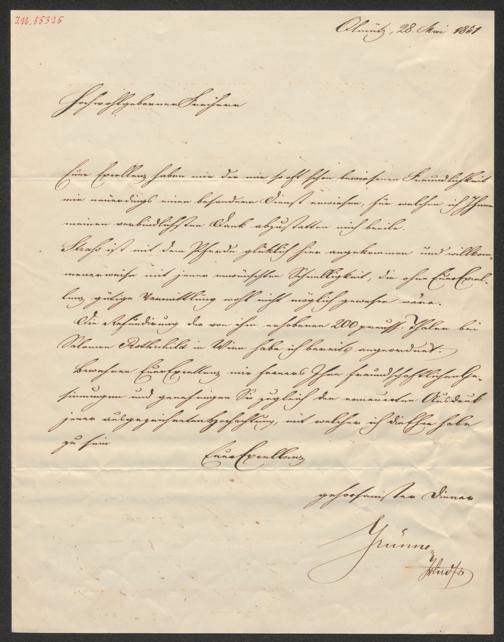 Z.N. 55325
Olmütz, 28. Mai 1851
Hochwohlgeborner Freiherr
Eure Excellenz haben mir bei mir so oft schon bewiesenen Freundlichkeit
mir neuerdings einen besondern Dienst erwiesen, für welchen ich Ihnen
meinen verbindlichsten Dank abzustatten mich beeile.
ist mit dem Pferde glücklich hier angekommen und
mit jener erwünschten Schnelligkeit, die ohne Eure Excel-
lenz gütige Vermittlung wohl nicht möglich gewesen wäre.
Die der von ihm erhobenen 200 preuss. Thaler bei
Salomon Rothschild in Wien habe ich bereits angeordnet.
Bewahren Eure Excellenz mir ferners Ihre freundschaftlichen Ge-
sinnungen und genehmigen Sie zugleich den erneuerten Ausdruck
jener ausgezeichneten Hochachtung, mit welcher ich die Ehre habe
zu sein
Eurer Excellenz
gehorsamster Diener
Grünne